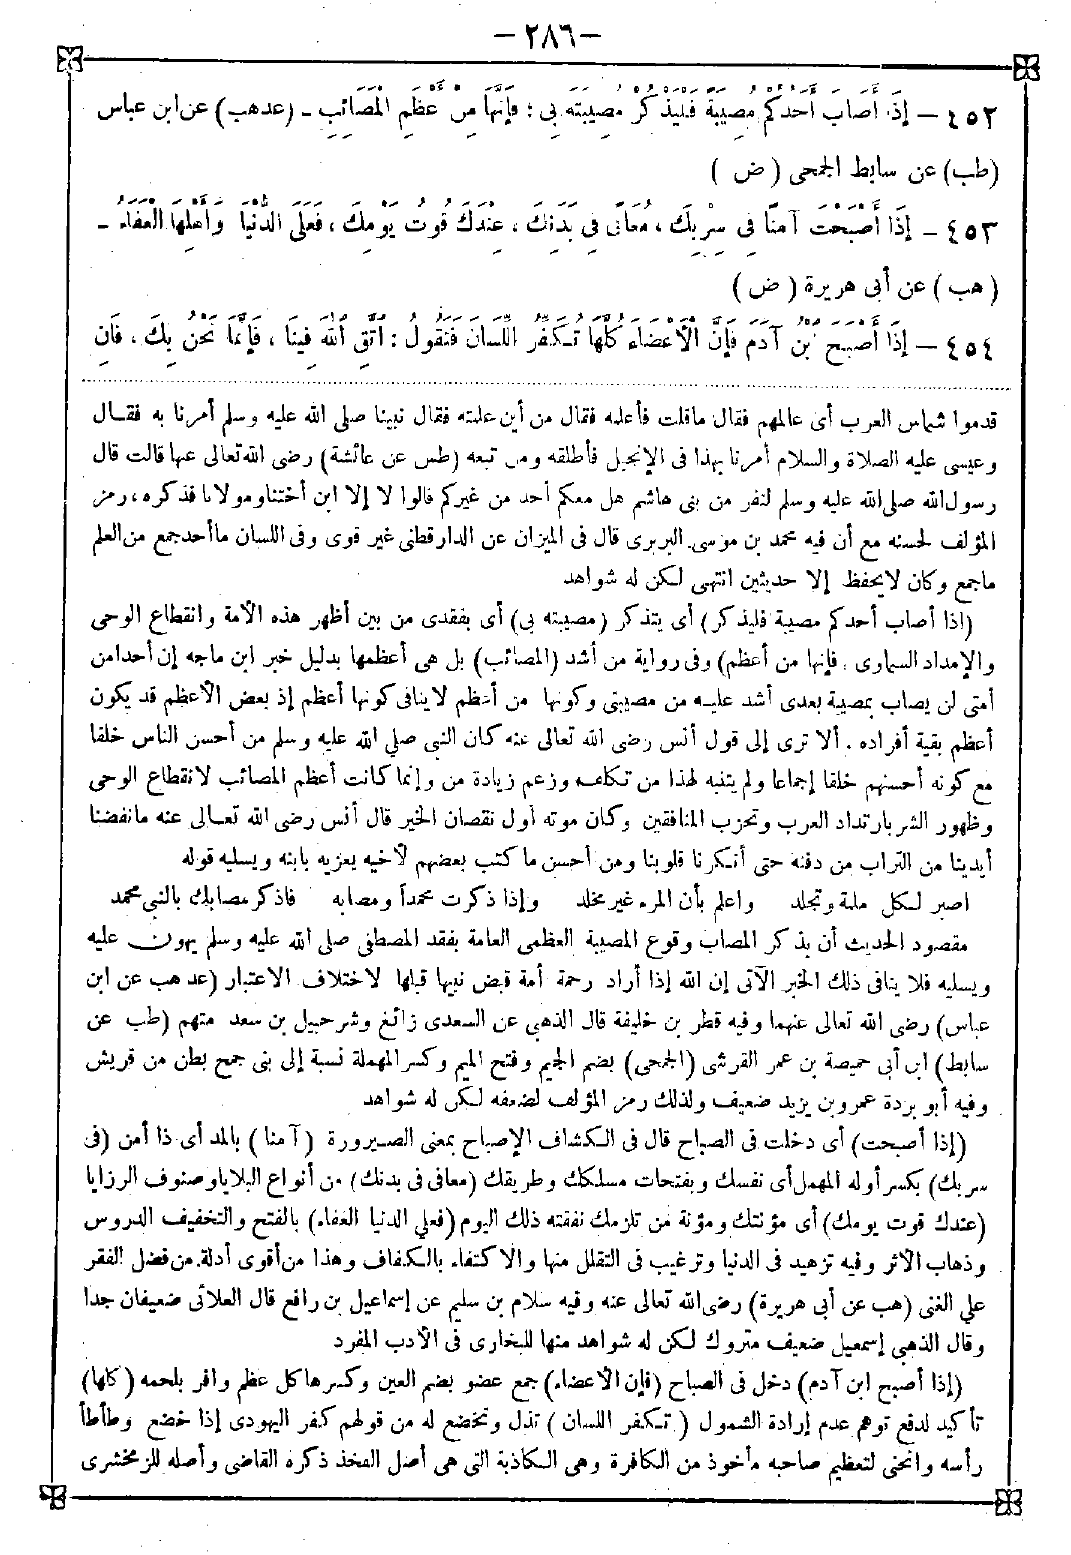 — ٢٨٦ —
٤٥٢ — إِذَا أَصَابَ أَحَدَكُمْ مُصِيبَةٌ فَلْيَذْكُرْ مُصِيبَتَهُ بِي ؛ فَإِنَّهَا مِنْ أَعْظَمِ الْمَصَائِبِ ـ (عد هب) عن ابن عباس
(طب) عن سابط الجمحى ( ض )
٤٥٣ — إِذَا أَصْبَحْتَ آمِنًا فِي سِرْبِكَ ، مُعَافًى فِي بَدَنِكَ ، عِنْدَكَ قُوتُ يَوْمِكَ ، فَعَلَى الدُّنْيَا وَأَهْلِهَا الْعَفَاءُ ـ
( هب ) عن أبى هريرة ( ض )
٤٥٤ — إِذَا أَصْبَحَ ابْنُ آدَمَ فَإِنَّ الْأَعْضَاءَ كُلَّهَا تُكَفِّرُ اللِّسَانَ فَتَقُولُ : اتَّقِ اللهَ فِينَا ، فَإِنَّمَا نَحْنُ بِكَ ، فَإِنِ
قدموا شماس العرب أى عالمهم فقال ماقلت فأعلمه فقال من أين علمته فقال نبينا صلى الله عليه وسلم أمرنا به فقـال
وعيسى عليه الصلاة والسلام أمرنا بهذا فى الإنجيل فأطلقه ومن تبعه (طس عن عائشة) رضى الله تعالى عنها قالت قال
رسول الله صلى الله عليه وسلم لنفر من بنى هاشم هل معكم أحد من غيركم قالوا لا إلا ابن أختنا ومولانا فذكره ، رمز
المؤلف لحسنه مع أن فيه محمد بن موسى البربرى قال فى الميزان عن الدارقطنى غير قوى وفى اللسان ماأحد جمع من العلم
ماجمع وكان لايحفظ إلا حديثين انتهى لكن له شواهد
(إذا أصاب أحدكم مصيبة فليذكر) أى يتذكر (مصيبته بى) أى بفقدى من بين أظهر هذه الأمة وانقطاع الوحى
والإمداد السماوى ، فإنها من أعظم) وفى رواية من أشد (المصائب) بل هى أعظمها بدليل خبر ابن ماجه إن أحدا من
أمتى لن يصاب بمصيبة بعدى أشد عليـه من مصيبتى وكونها من أعظم لاينافى كونها أعظم إذ بعض الأعظم قد يكون
أعظم بقية أفراده . ألا ترى إلى قول أنس رضى الله تعالى عنه كان النبى صلى الله عليه وسلم من أحسن الناس خلقا
مع كونه أحسنهم خلقا إجماعا ولم يتنبه لهذا من تكلف وزعم زيادة من وإنما كانت أعظم المصائب لانقطاع الوحى
وظهور الشر بارتداد العرب وتحزب المنافقين وكان موته أول نقصان الخير قال أنس رضى الله تعـالى عنه مانفضنا
أيدينا من التراب من دفنه حتى أنكرنا قلوبنا ومن أحسن ماكتب بعضهم لأخيه يعزيه بابنه ويسليه قوله
اصبر لـكل ملمة وتجلد    واعلم بأن المرء غير مخلد    وإذا ذكرت محمدا ومصابه    فاذكر مصابك بالنبى محمد
مقصود الحديث أن يذكر المصاب وقوع المصيبة العظمى العامة بفقد المصطفى صلى الله عليه وسلم يهون عليه
ويسليه فلا ينافى ذلك الخبر الآتى إن الله إذا أراد رحمة أمة قبض نبيها قبلها لاختلاف الاعتبار (عد هب عن ابن
عباس) رضى الله تعالى عنهما وفيه قطر بن خليفة قال الذهبى عن السعدى زائغ وشرحبيل بن سعد متهم (طب عن
سابط) ابن أبى حميصة بن عمر القرشى (الجمحى) بضم الجيم وفتح الميم وكسر المهملة نسبة إلى بنى جمح بطن من قريش
وفيه أبو بردة عمرو بن يزيد ضعيف ولذلك رمز المؤلف لضعفه لكن له شواهد
(إذا أصبحت) أى دخلت فى الصباح قال فى الكشاف الإصباح بمعنى الصيرورة (آمنا) بالمد أى ذا أمن (فى
سربك) بكسر أوله المهمل أى نفسك وبفتحات مسلكك وطريقك (معافى فى بدنك) من أنواع البلايا وصنوف الرزايا
(عندك قوت يومك) أى مؤنتك ومؤنة من تلزمك نفقته ذلك اليوم (فعلى الدنيا العفاء) بالفتح والتخفيف الدروس
وذهاب الأثر وفيه تزهيد فى الدنيا وترغيب فى التقلل منها والاكتفاء بالكفاف وهذا من أقوى أدلة من فضل الفقر
على الغنى (هب عن أبى هريرة) رضى الله تعالى عنه وفيه سلام بن سليم عن إسماعيل بن رافع قال العلائى ضعيفان جدا
وقال الذهبى إسمعيل ضعيف متروك لكن له شواهد منها للبخارى فى الأدب المفرد
(إذا أصبح ابن آدم) دخل فى الصباح (فإن الأعضاء) جمع عضو بضم العين وكسرها كل عظم وافر بلحمه (كلها)
تأكيد لدفع توهم عدم إرادة الشمول ( تـكفر اللسان ) تذل وتخضع له من قولهم كفر اليهودى إذا خضع وطأطأ
رأسه وانحنى لتعظيم صاحبه مأخوذ من الكافرة وهى الـكاذبة التى هى أصل الفخذ ذكره القاضى وأصله للزمخشرى